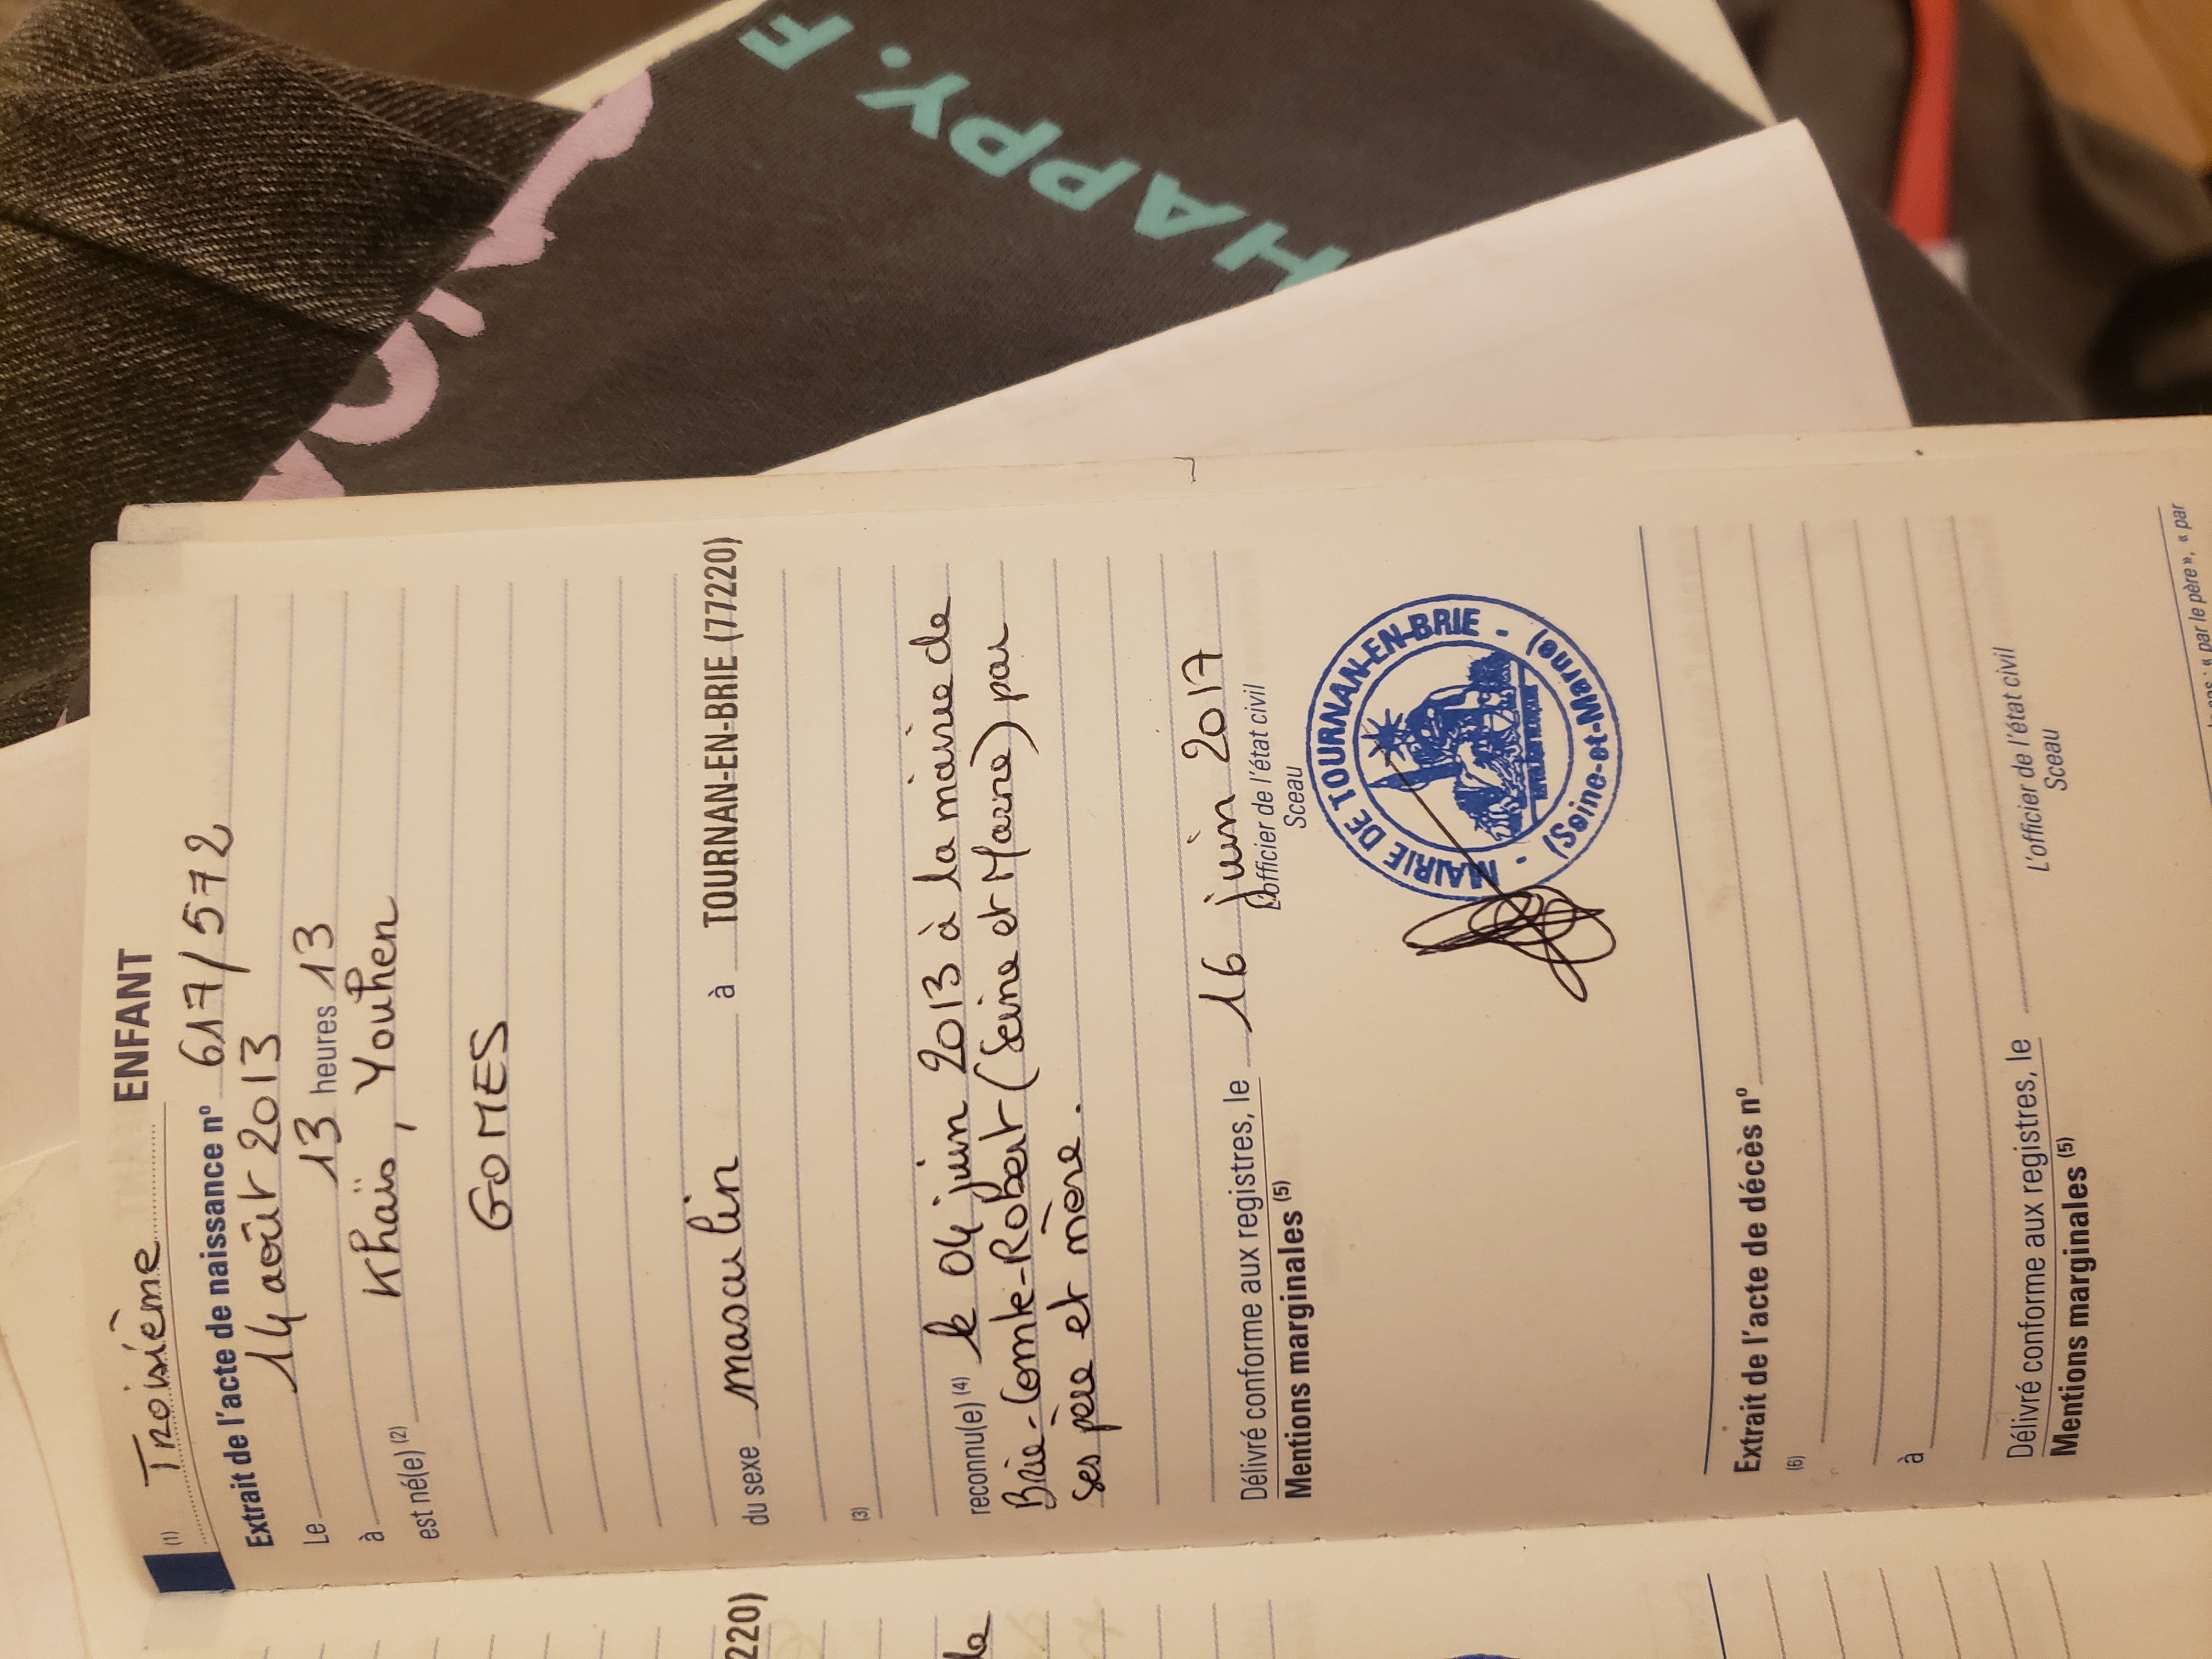 HAPPY. F
(1) Troisième ENFANT
Extrait de l'acte de naissance nº 617/572
Le 14 août 2013
à 13 heures 13
est né(e) (2) Khaïs, Youhen
GOMES
du sexe masculin à TOURNAN-EN-BRIE (77220)
(3)
reconnu(e) (4) le 04 juin 2013 à la mairie de
Brie-Comte-Robert (Seine et Marne) par
ses père et mère.
Délivré conforme aux registres, le 16 juin 2017
Mentions marginales (5)
L'officier de l'état civil
Sceau
MAIRIE DE TOURNAN-EN-BRIE - (Seine-et-Marne) -
Extrait de l'acte de décès nº
(6)
à
Délivré conforme aux registres, le
Mentions marginales (5)
L'officier de l'état civil
Sceau
« par le père », « par
220)
de